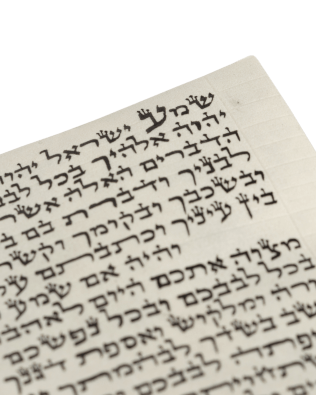 שמע ישראל יהוה
יהוה אלהיך בכל לבבך
הדברים האלה אשר
לבניך ודברת בם ב
ובשכבך ובקומך וקשר
בין עיניך וכתבתם על
והיה אם שמע
מצוה אתכם היום לאהבה
בכל לבבכם ובכל נפשכם
ורה ומלקוש ואספת דגנך
שב בשדך לבהמתך
פתה לבבכם